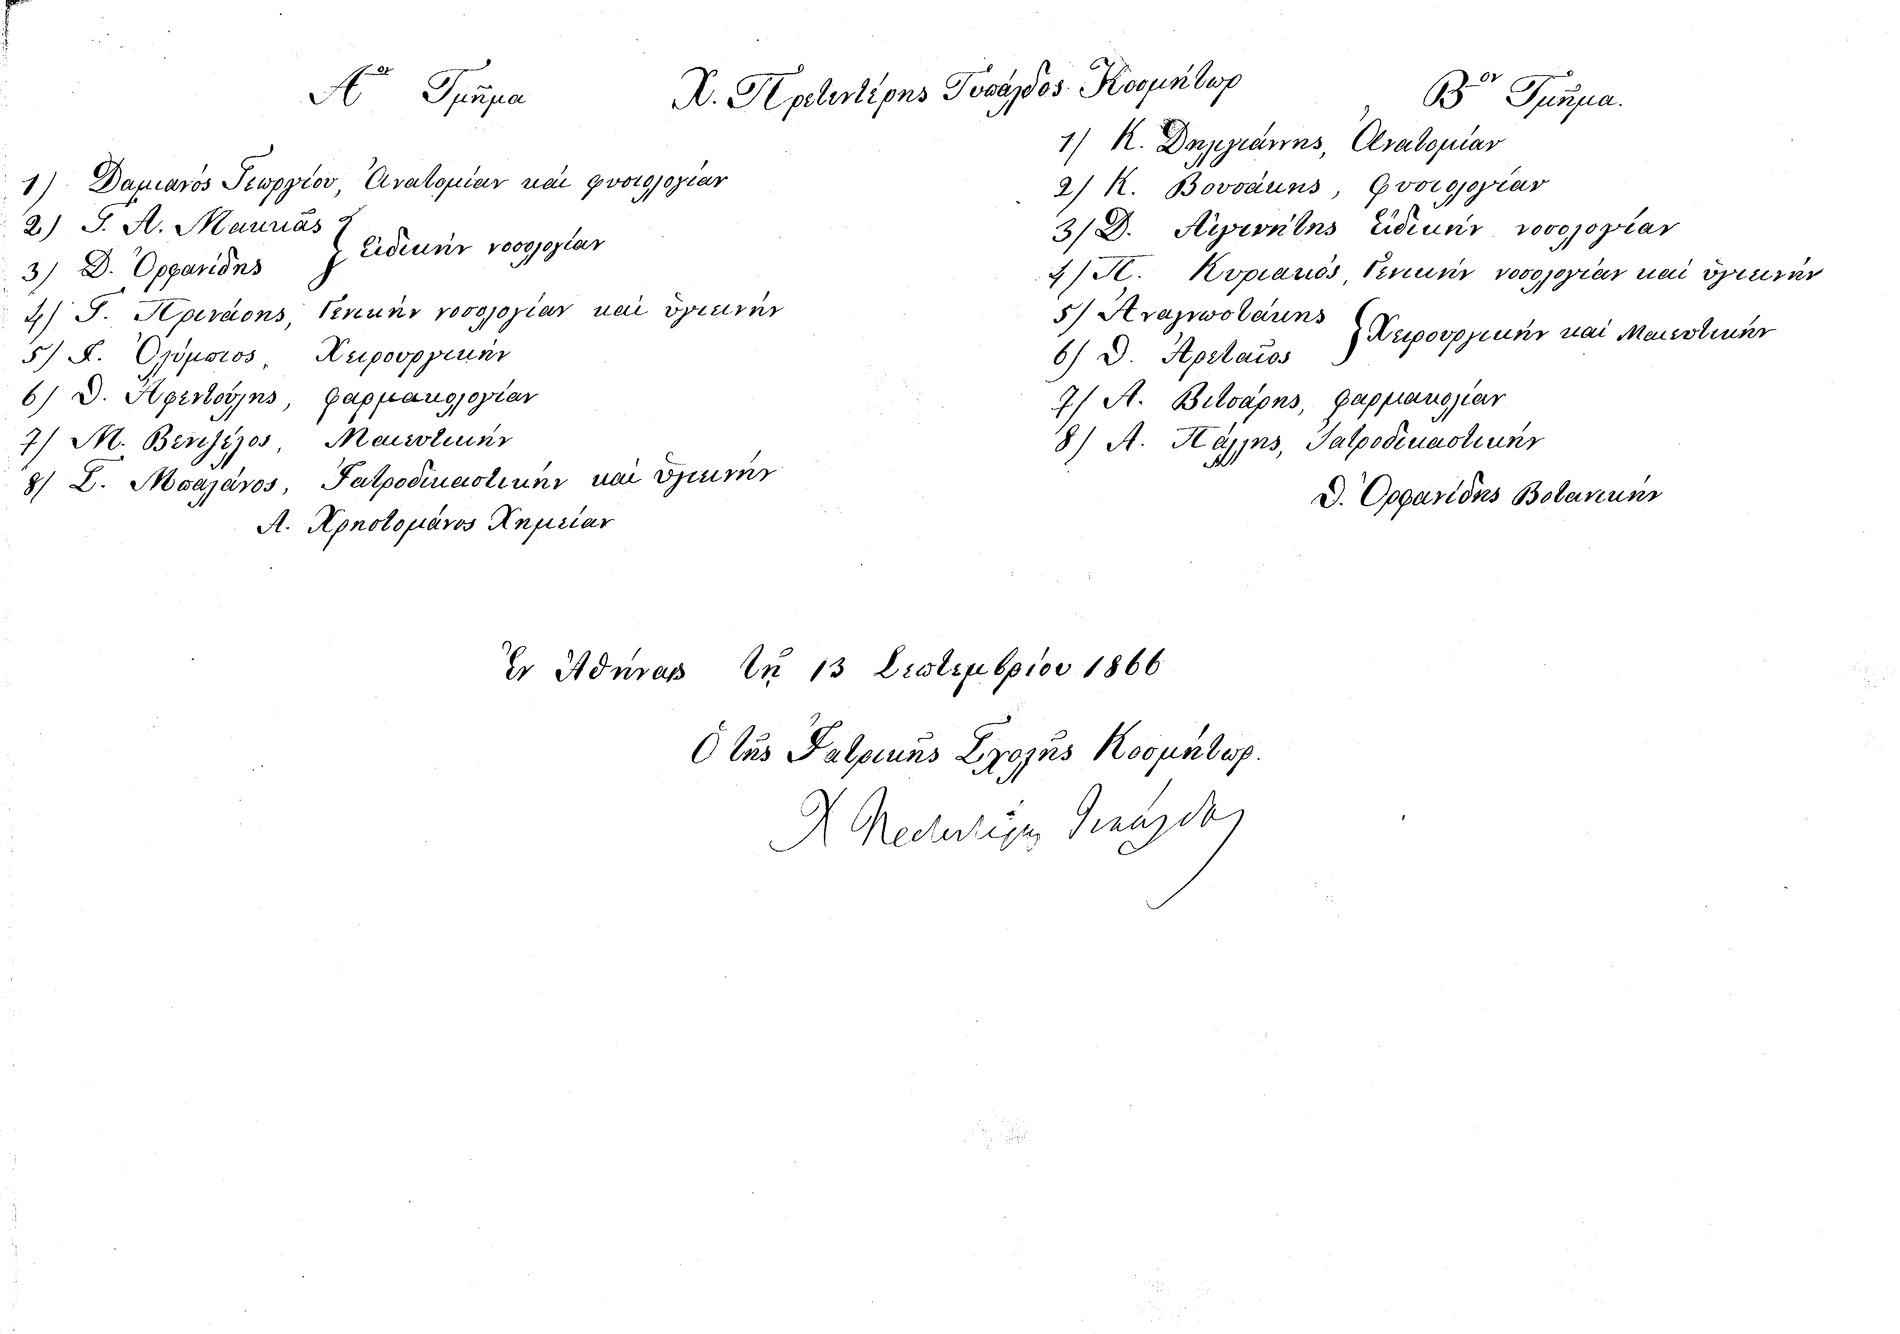 Αον Τμῆμα
Χ. Πρετεντέρης Τυπάλδος Κοσμήτωρ
Βον Τμῆμα.
1) Δαμιανός Γεωργίου, Ἀνατομίαν καί φυσιολογίαν
2) Γ. Α. Μακκᾶς
3) Θ. Ὀρφανίδης } Εἰδικήν νοσολογίαν
4) Γ. Πρινάρης, Γενικήν νοσολογίαν καί ὑγιεινήν
5) Ι. Ὀλύμπιος, Χειρουργικήν
6) Θ. Ἀφεντούλης, φαρμακολογίαν
7) Μ. Βενιζέλος, Μαιευτικήν
8) Σ. Μπαλάνος, Ἰατροδικαστικήν καί ὑγιεινήν
Α. Χρηστομάνος Χημείαν
1) Κ. Δηλιγιάννης, Ἀνατομίαν
2) Κ. Βουσάκης, φυσιολογίαν
3) Δ. Αἰγινήτης Εἰδικήν νοσολογίαν
4) Π. Κυριακός, Γενικήν νοσολογίαν καί ὑγιεινήν
5) Ἀναγνωστάκης
6) Θ. Ἀρεταῖος } Χειρουργικήν καί Μαιευτικήν
7) Α. Βιτσάρης, φαρμακολίαν
8) Α. Πάλλης, Ἰατροδικαστικήν
Θ. Ὀρφανίδης Βοτανικήν
Ἐν Ἀθήναις τῇ 13 Σεπτεμβρίου 1866
Ὁ τῆς Ἰατρικῆς Σχολῆς Κοσμήτωρ.
Χ Πρετεντέρης Τυπάλδος